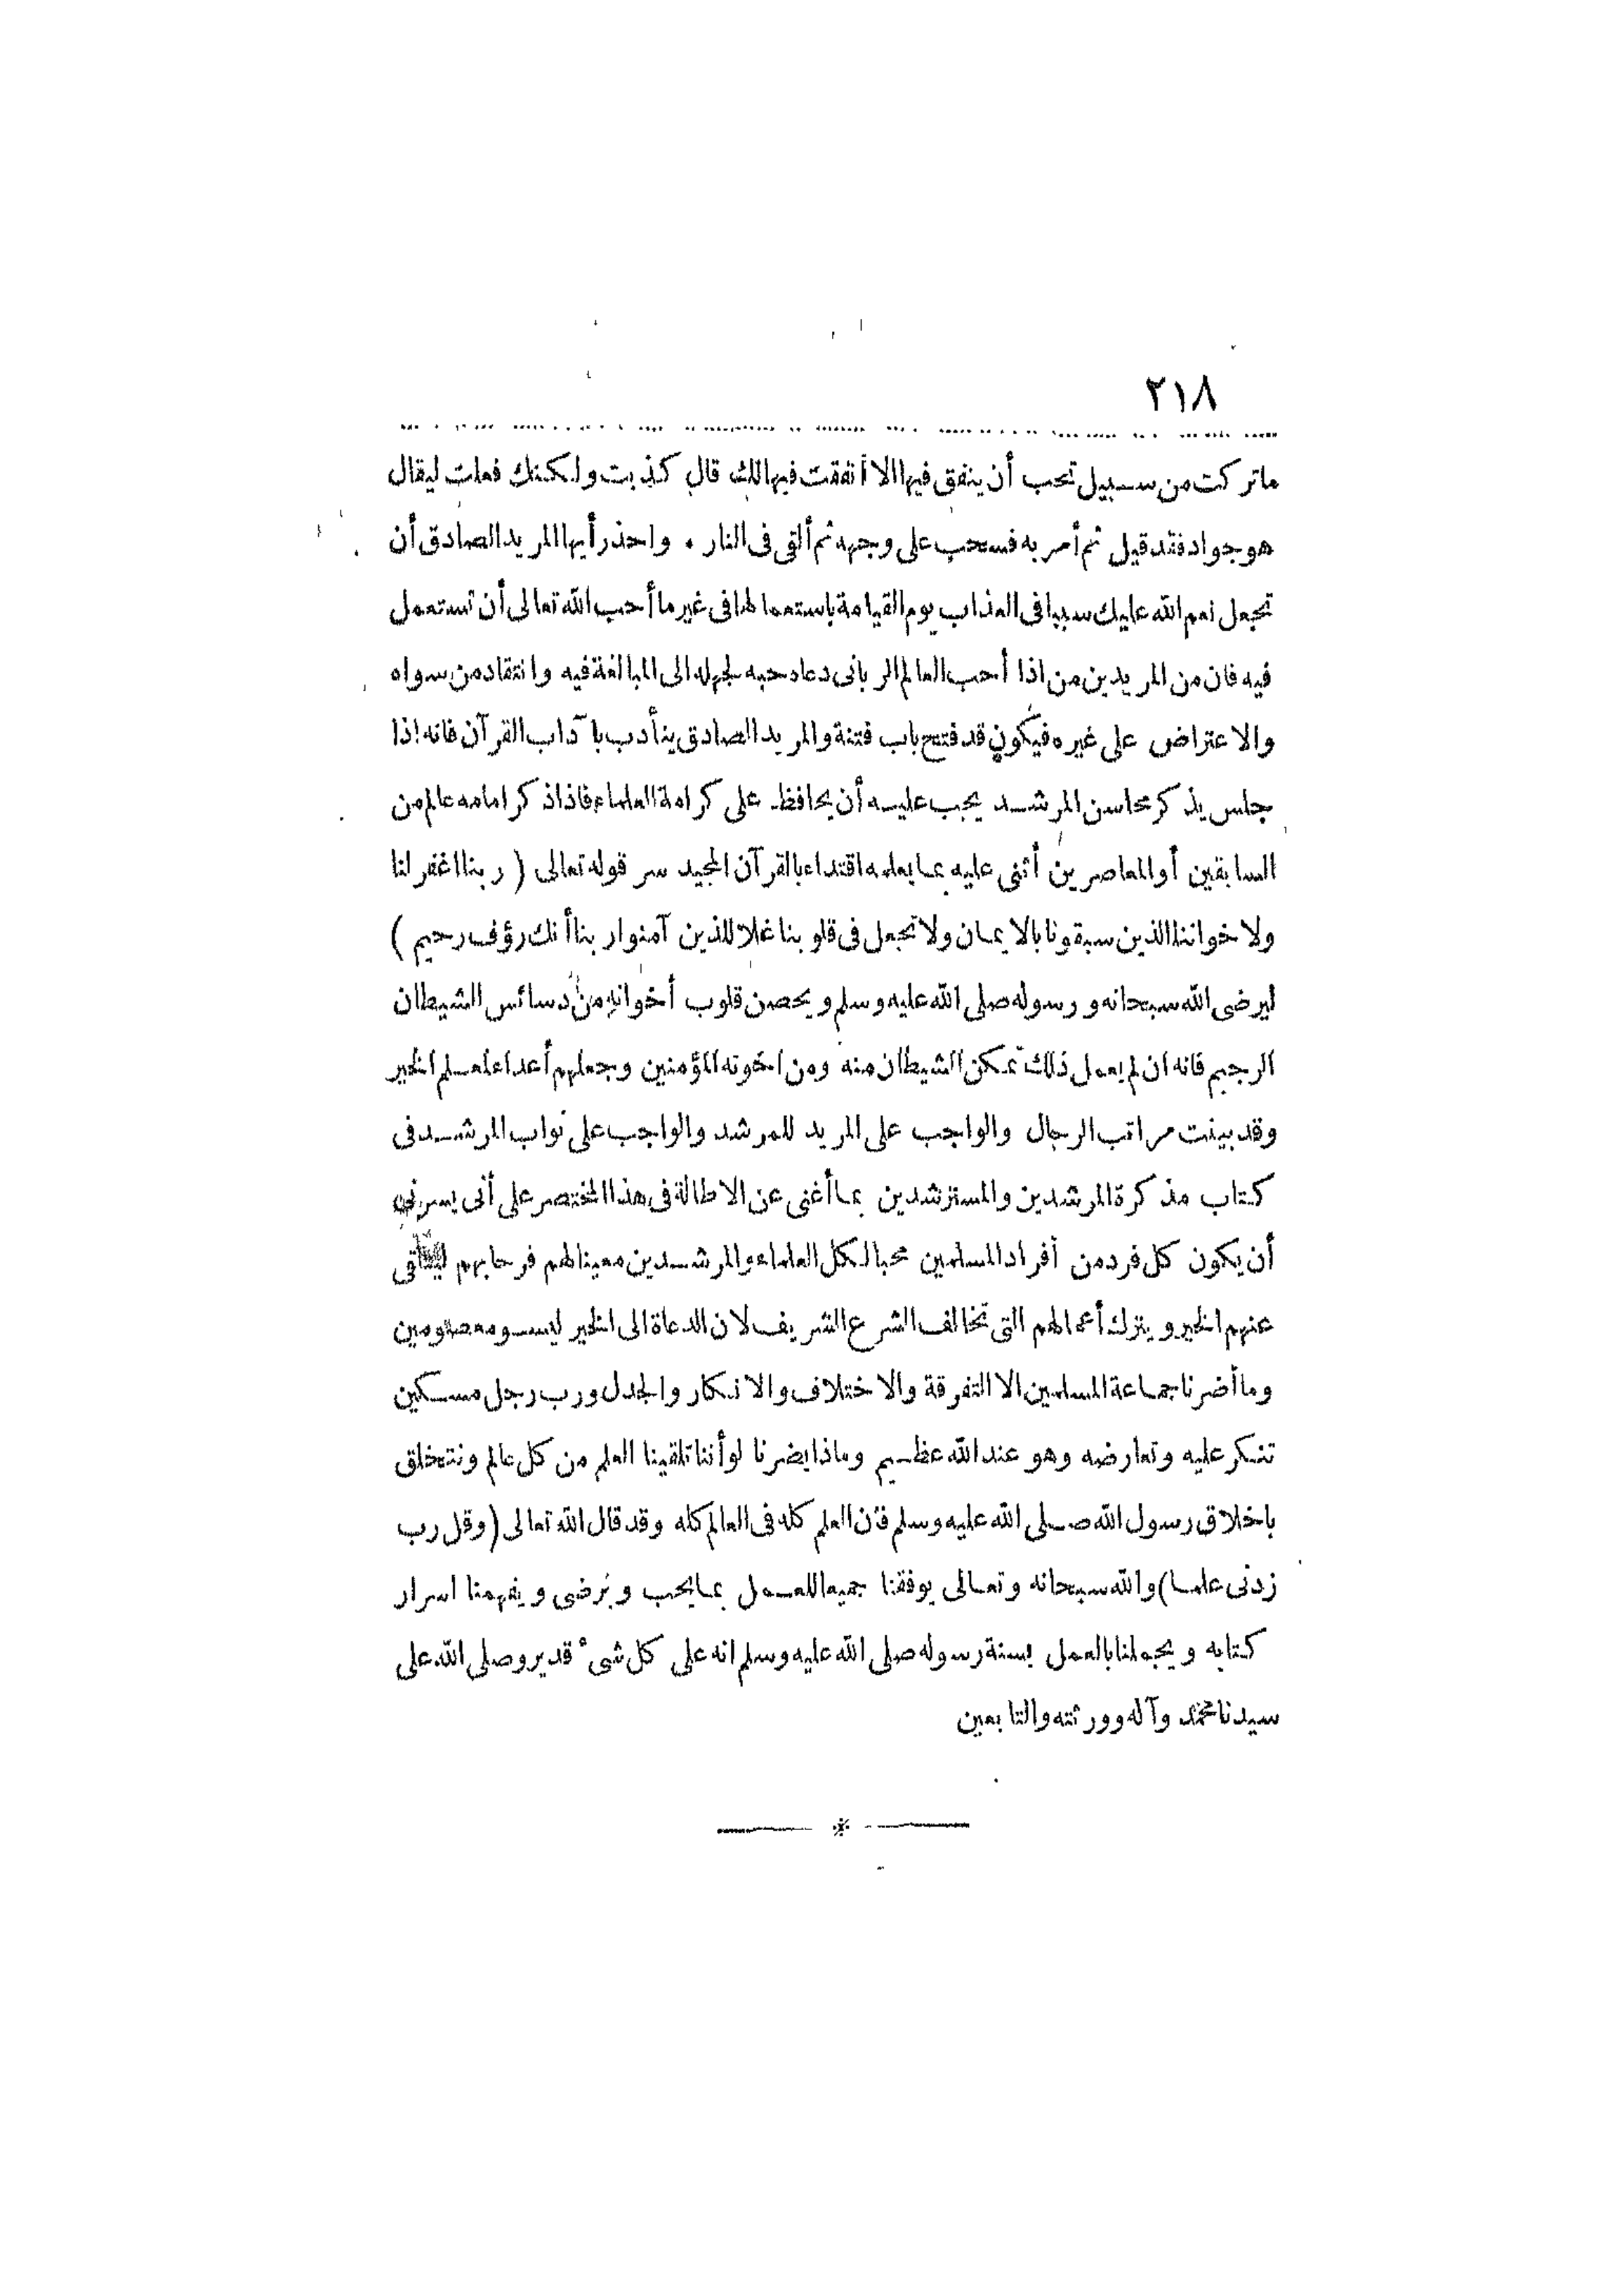 ٢١٨
ما تركت من سبيل تحب أن ينفق فيها الا أنفقت فيها لك قال كذبت ولكنك فعلت ليقال
هو جواد فقد قيل ثم أمر به فسحب على وجهه ثم ألقى فى النار . واحذر أيها المريد الصادق أن
تجعل نعم الله عليك سببا فى العذاب يوم القيامة باستعمالها فى غير ما أحب الله تعالى أن تستعمل
فيه فان من المريدين من اذا أحب العالم الربانى دعاه حبه لجهله الى المبالغة فيه وانتقاد من سواه
والاعتراض على غيره فيكون قد فتح باب فتنة والمريد الصادق يتأدب بآداب القرآن فانه اذا
جلس يذكر محاسن المرشد يجب عليه أن يحافظ على كرامة العلماء فاذا ذكر امامه عالم من
السابقين أو المعاصرين أثنى عليه بما يعلمه اقتداء بالقرآن المجيد سر قوله تعالى ( ربنا اغفر لنا
ولاخواننا الذين سبقونا بالايمان ولا تجعل فى قلوبنا غلا للذين آمنوا ربنا أنك رؤف رحيم )
ليرضى الله سبحانه ورسوله صلى الله عليه وسلم ويحصن قلوب أخوانه من دسائس الشيطان
الرجيم فانه ان لم يعمل ذلك تمكن الشيطان منه ومن اخوته المؤمنين وجعلهم أعداء لمعلم الخير
وقد بينت مراتب الرجال والواجب على المريد للمرشد والواجب على نواب المرشد فى
كتاب مذكرة المرشدين والمسترشدين بما أغنى عن الاطالة فى هذا المختصر على أنى يسرنى
أن يكون كل فرد من أفراد المسلمين محبا لكل العلماء والمرشدين معينا لهم فرحا بهم ليتلقى
عنهم الخير ويترك أعمالهم التى تخالف الشرع الشريف لان الدعاة الى الخير ليسو معصومين
وما أضرنا جماعة المسلمين الا التفرقة والاختلاف والانكار والجدل ورب رجل مسكين
تنكر عليه وتعارضه وهو عند الله عظيم وماذا يضرنا لو أننا تلقينا العلم من كل عالم ونتخلق
باخلاق رسول الله صلى الله عليه وسلم فأن العلم كله فى العالم كله وقد قال الله تعالى (وقل رب
زدنى علما) والله سبحانه وتعالى يوفقنا جميعا للعمل بما يحب ويرضى ويفهمنا اسرار
كتابه ويجملنا بالعمل بسنة رسوله صلى الله عليه وسلم انه على كل شىء قدير وصلى الله على
سيدنا محمد وآله وورثته والتابعين